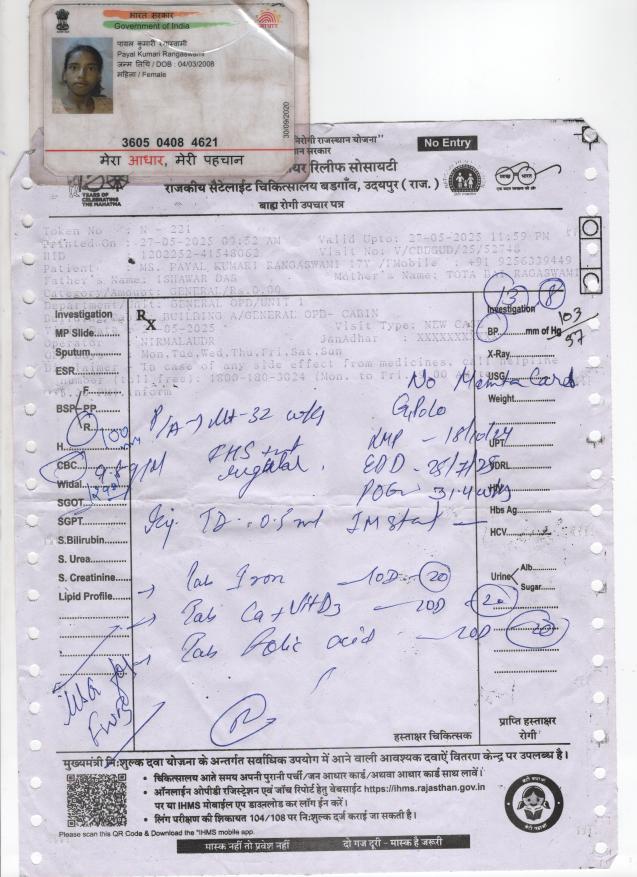 भारत सरकार
Government of India
पायल कुमारी रंगास्वामी
Payal Kumari Rangaswami
जन्म तिथि / DOB : 04/03/2008
महिला / Female
30/09/2020
3605 0408 4621
मेरा आधार, मेरी पहचान
निरोगी राजस्थान योजना"
No Entry
रिलीफ सोसायटी
राजकीय सैटेलाईट चिकित्सालय बडगाँव, उदयपुर ( राज. )
YEARS OF CELEBRATING THE MAHATMA
बाह्य रोगी उपचार पत्र
Token No : N - 231
Printed On : 27-05-2025 09:52 AM Valid Upto: 27-05-2025 11:59 PM
HID : 1202252-41548062 Visit No: V/CBUGUD/25/52748
Patient : MS. PAYAL KUMARI RANGASWAMI 17Y /F Mobile : +91 9256339449
Father's Name: ISHAWAR DAS Mother's Name: TOTA RAGASWAMI
Category/Amount: GENERAL/Rs.0.00
GENERAL OPD/UNIT 1
BUILDING A/GENERAL OPD- CABIN
05-2025 Visit Type: NEW
NIRMALAUDR JanAdhar : XXXXXXX
Mon,Tue,Wed,Thu,Fri,Sat,Sun
In case of any side effect from medicines, call
number (toll free): 1800-180-3024 (Mon. to Fri.
inform
Investigation
MP Slide......
Sputum......
ESR......
F.
BSP PP.
R.
100
H.
CBC......
9.8 g/M
Widal
SGOT
SGPT......
S.Bilirubin......
S. Urea......
S. Creatinine......
Lipid Profile......
Rx
P/A -> Ut-32 wks
FHS +nt
regular.
No Mamta Card
LMP - 18/10/24
EDD - 25/7/25
POG 31.4 wks
Inj. TD 0.5 ml IM Stat
Tab Iron 10D 20
Tab Ca + Vit D3 20D 20
Tab Folic acid 20D 20
USG for
13 8
Investigation
BP......mm of Hg
103/57
X-Ray......
USG
Weight......
UPT
VDRL
HIV
Hbs Ag
HCV......
Urine Alb.
Sugar
हस्ताक्षर चिकित्सक
प्राप्ति हस्ताक्षर
रोगी
मुख्यमंत्री निःशुल्क दवा योजना के अन्तर्गत सर्वाधिक उपयोग में आने वाली आवश्यक दवाऐं वितरण केन्द्र पर उपलब्ध है।
• चिकित्सालय आते समय अपनी पुरानी पर्ची/जन आधार कार्ड/अथवा आधार कार्ड साथ लावें।
• ऑनलाईन ओपीडी रजिस्ट्रेशन एवं जाँच रिपोर्ट हेतु वेबसाईट https://ihms.rajasthan.gov.in
पर या IHMS मोबाईल एप डाउनलोड कर लॉग ईन करें।
• लिंग परीक्षण की शिकायत 104/108 पर निःशुल्क दर्ज कराई जा सकती है।
Please scan this QR Code & Download the "IHMS mobile app.
मास्क नहीं तो प्रवेश नहीं दो गज दूरी - मास्क है जरूरी